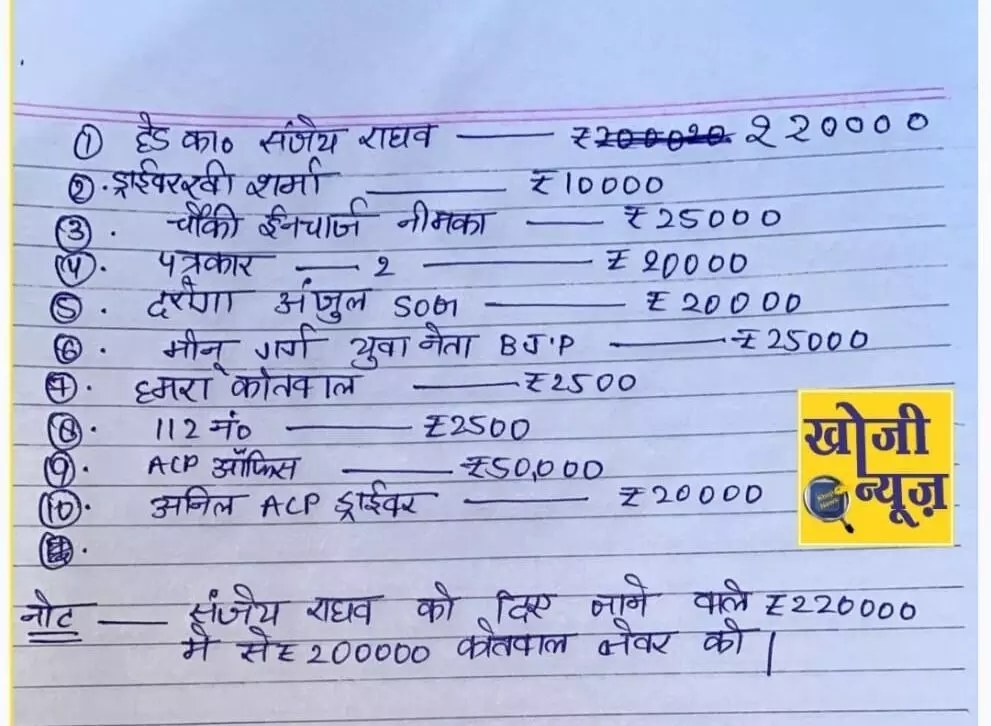 ① हेड का० संजैय राघव —— ₹200020 220000
②. ड्राईवर रवी शर्मा —— ₹10000
③. चौकी ईनचार्ज नीमका —— ₹25000
④. पत्रकार — 2 —— ₹20000
⑤. दरोगा अंजुल SOG —— ₹20000
⑥. मीनू गर्ग युवा नेता BJP —— ₹25000
⑦. हमरा कोतवाल —— ₹2500
⑧. 112 नं० —— ₹2500
⑨. ACP ऑफिस —— ₹50,000
⑩. अनिल ACP ड्राईवर —— ₹20000
नोट — संजैय राघव को दिए जाने वाले ₹220000
में से ₹200000 कोतवाल को |
खोजी
न्यूज़